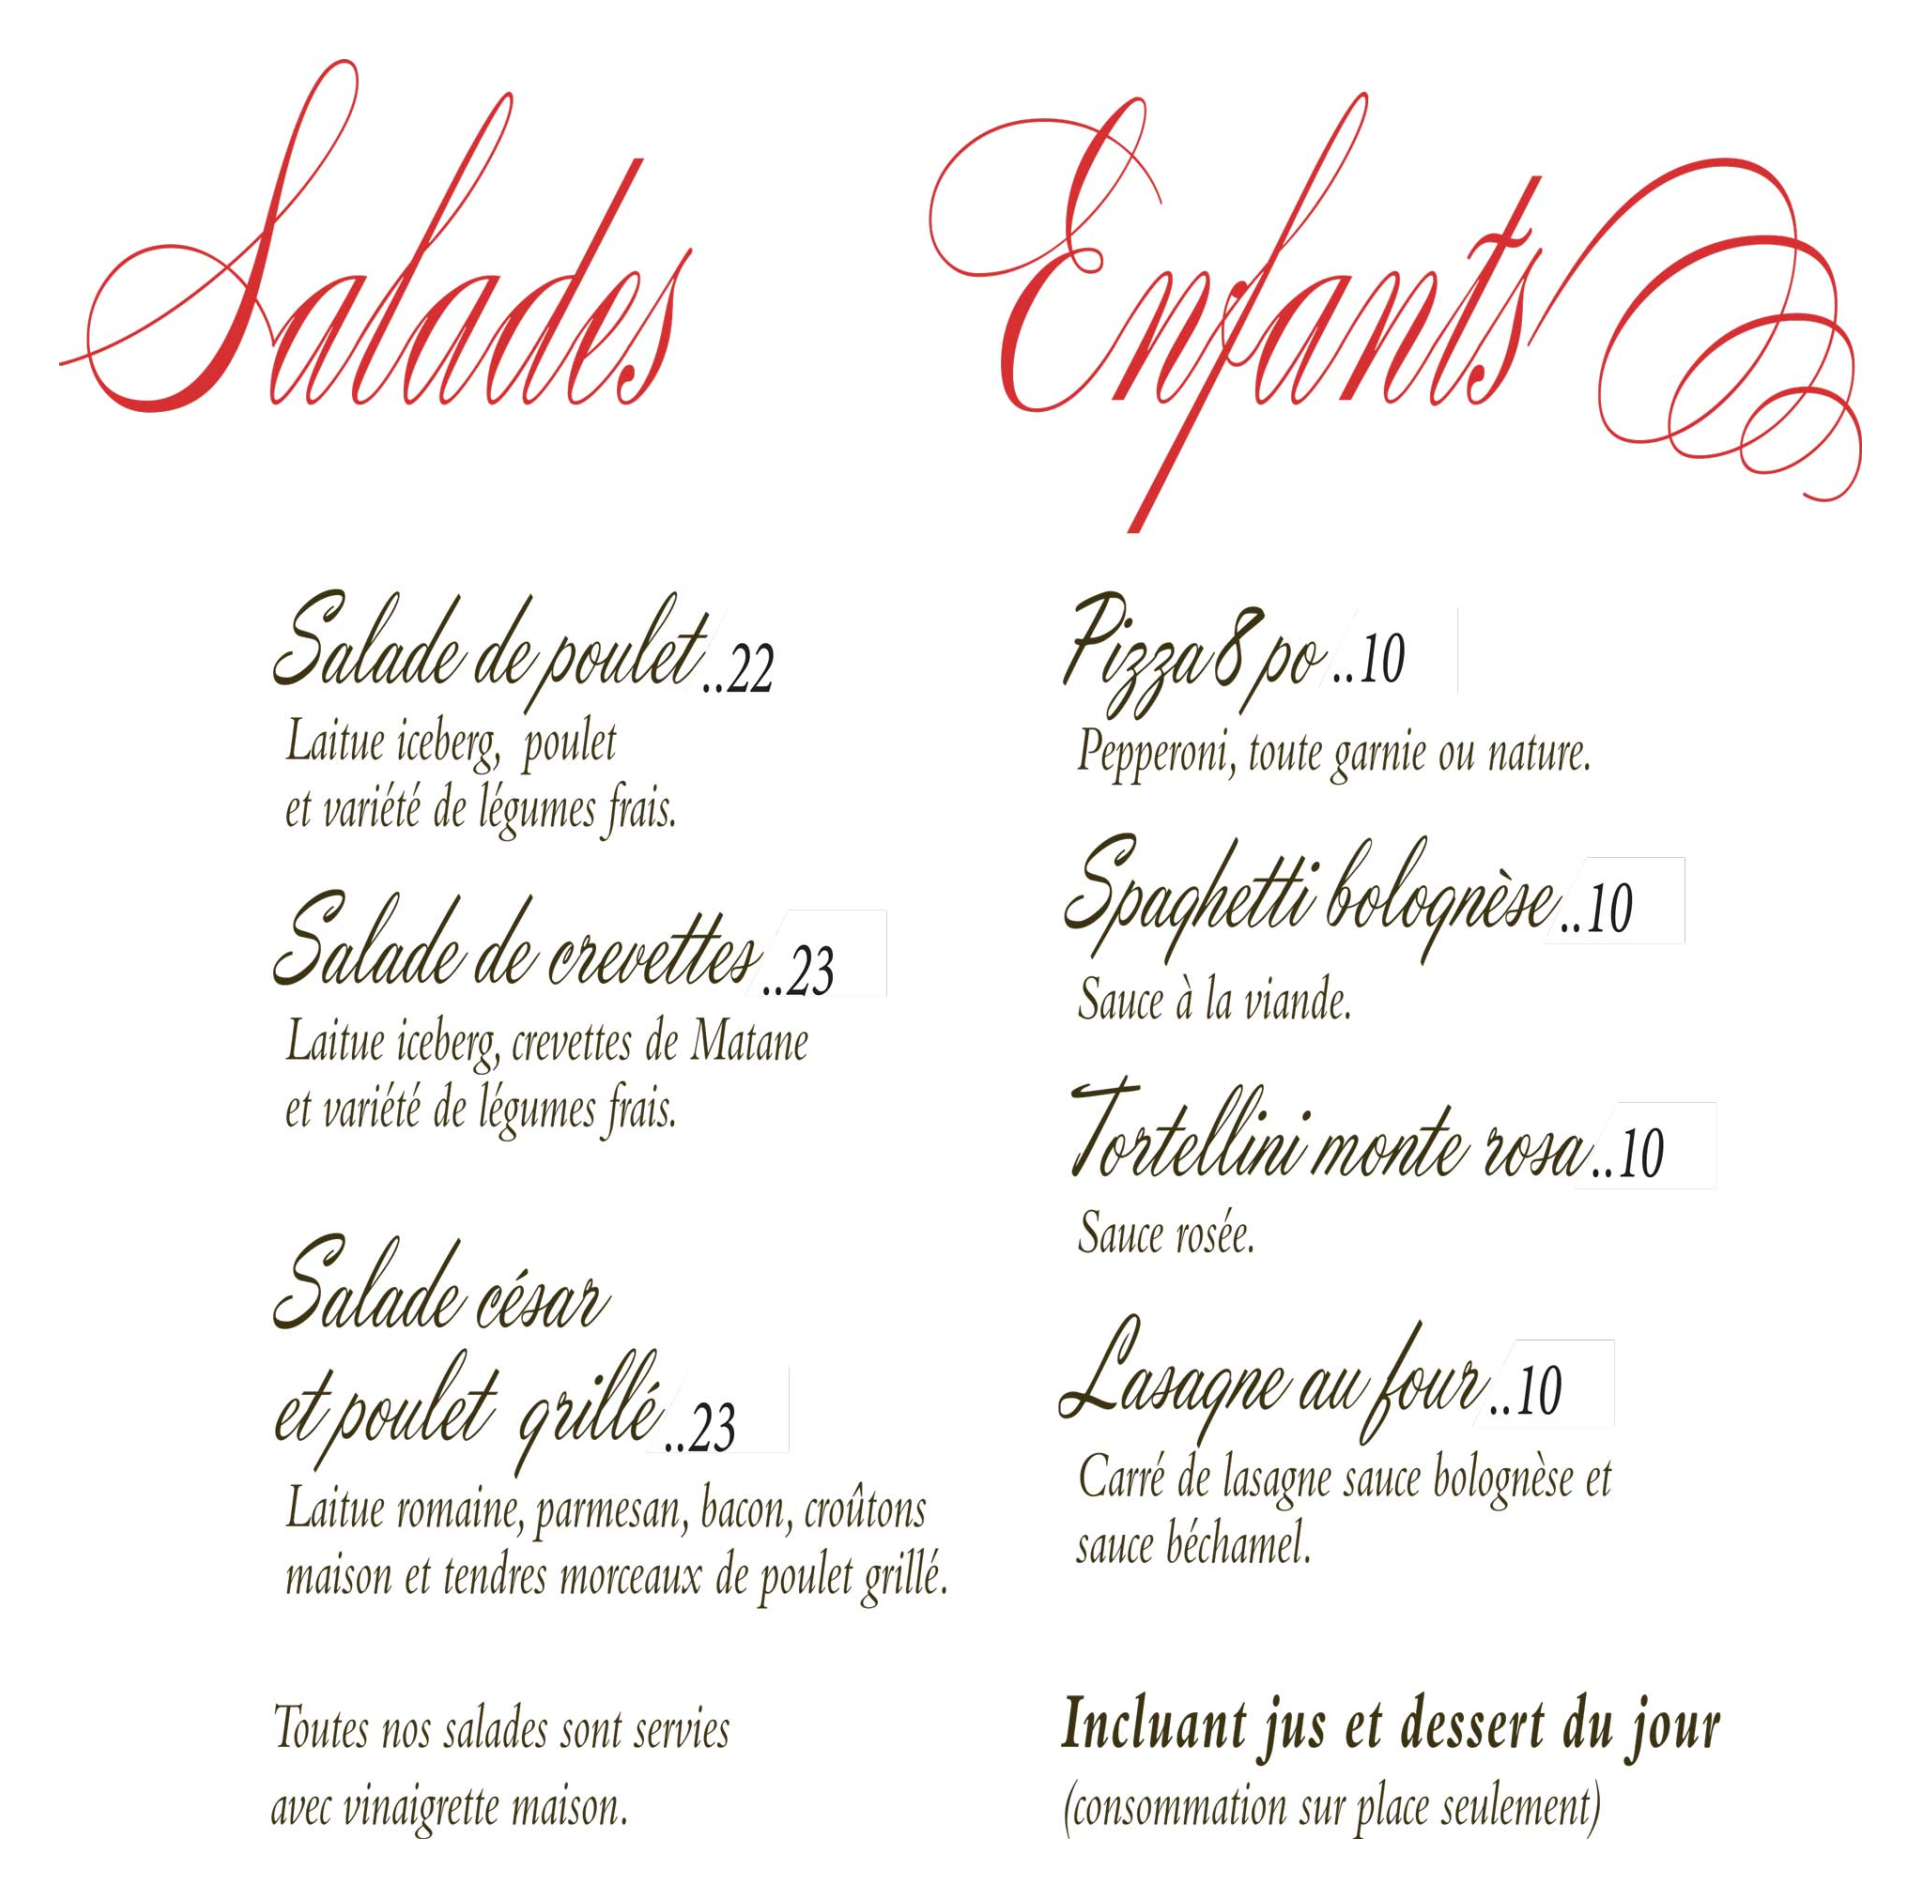 Salades
Salade de poulet..22
Laitue iceberg, poulet
et variété de légumes frais.
Salade de crevettes..23
Laitue iceberg, crevettes de Matane
et variété de légumes frais.
Salade césar
et poulet grillé..23
Laitue romaine, parmesan, bacon, croûtons
maison et tendres morceaux de poulet grillé.
Toutes nos salades sont servies
avec vinaigrette maison.
Enfants
Pizza 8 po..10
Pepperoni, toute garnie ou nature.
Spaghetti bolognèse..10
Sauce à la viande.
Tortellini monte rosa..10
Sauce rosée.
Lasagne au four..10
Carré de lasagne sauce bolognèse et
sauce béchamel.
Incluant jus et dessert du jour
(consommation sur place seulement)